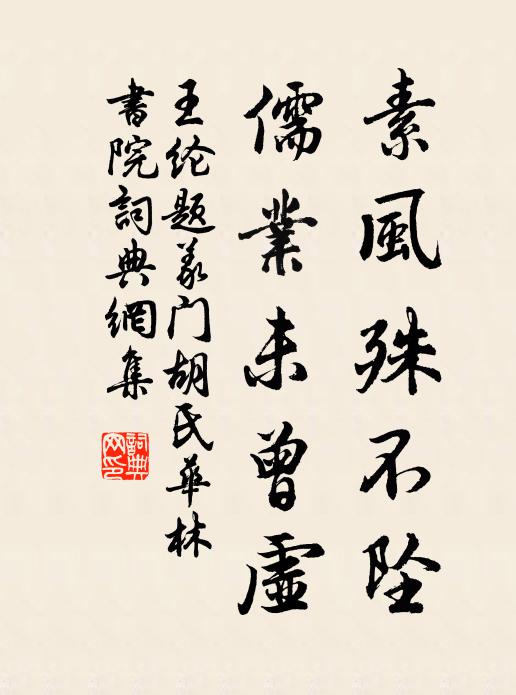 素風殊不墜
儒業未曾虛
王纶題義门胡氏華林
書院詞典網集
詞典网印